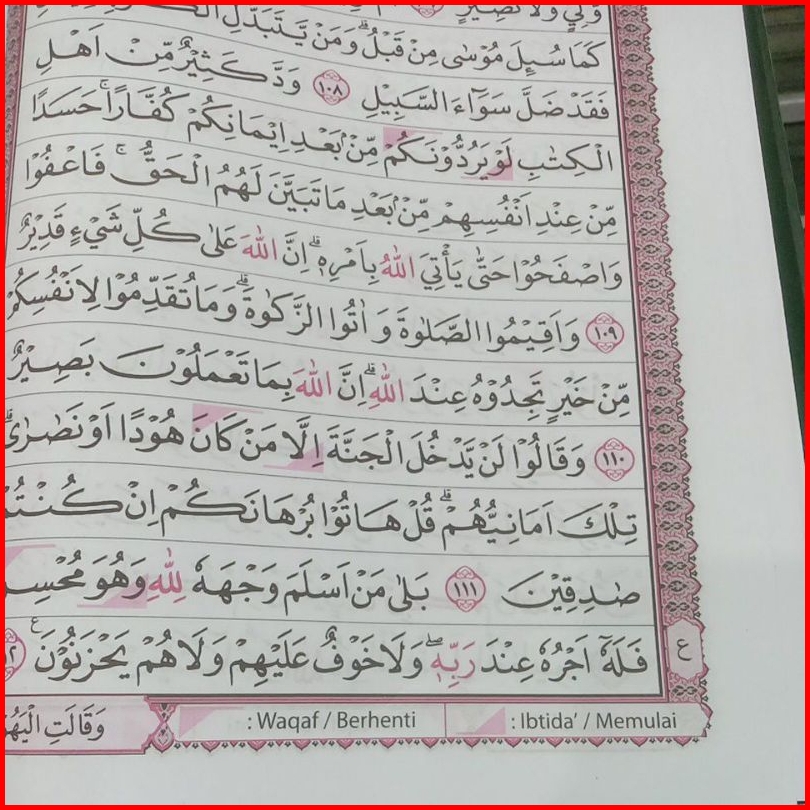 وَلِيٍّ وَّلَا نَصِيْرٍ
كَمَا سُىِٕلَ مُوْسٰى مِنْ قَبْلُۗ وَمَنْ يَّتَبَدَّلِ
فَقَدْ ضَلَّ سَوَاۤءَ السَّبِيْلِ ١٠٨ وَدَّ كَثِيْرٌ مِّنْ اَهْلِ
الْكِتٰبِ لَوْ يَرُدُّوْنَكُمْ مِّنْۢ بَعْدِ اِيْمَانِكُمْ كُفَّارًاۚ حَسَدًا
مِّنْ عِنْدِ اَنْفُسِهِمْ مِّنْۢ بَعْدِ مَا تَبَيَّنَ لَهُمُ الْحَقُّۚ فَاعْفُوْا
وَاصْفَحُوْا حَتّٰى يَأْتِيَ اللّٰهُ بِاَمْرِهٖۗ اِنَّ اللّٰهَ عَلٰى كُلِّ شَيْءٍ قَدِيْرٌ
١٠٩ وَاَقِيْمُوا الصَّلٰوةَ وَاٰتُوا الزَّكٰوةَۗ وَمَا تُقَدِّمُوْا لِاَنْفُسِكُمْ
مِّنْ خَيْرٍ تَجِدُوْهُ عِنْدَ اللّٰهِۗ اِنَّ اللّٰهَ بِمَا تَعْمَلُوْنَ بَصِيْرٌ
١١٠ وَقَالُوْا لَنْ يَّدْخُلَ الْجَنَّةَ اِلَّا مَنْ كَانَ هُوْدًا اَوْ نَصٰرٰىۗ
تِلْكَ اَمَانِيُّهُمْۗ قُلْ هَاتُوْا بُرْهَانَكُمْ اِنْ كُنْتُمْ
صٰدِقِيْنَ ١١١ بَلٰى مَنْ اَسْلَمَ وَجْهَهٗ لِلّٰهِ وَهُوَ
فَلَهٗٓ اَجْرُهٗ عِنْدَ رَبِّهٖۖ وَلَا خَوْفٌ عَلَيْهِمْ وَلَا هُمْ يَحْزَنُوْنَ ࣖ
ع
وَقَالَتِ
: Waqaf / Berhenti : Ibtida’ / Memulai